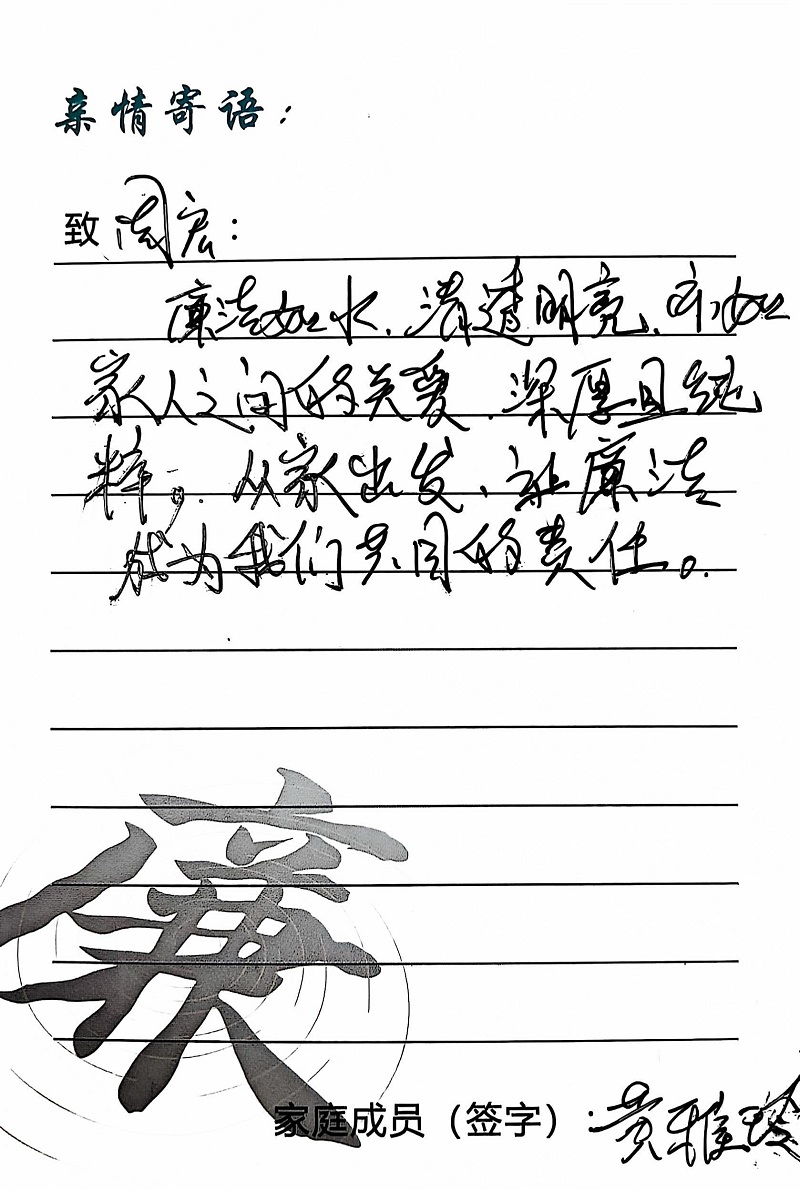 亲情寄语：
致周宏：
廉洁如水，清透明亮，亦如
家人之间的关爱，深厚且纯
粹。从家出发，让廉洁
成为我们共同的责任。
廉
家庭成员（签字）：黄雅玲